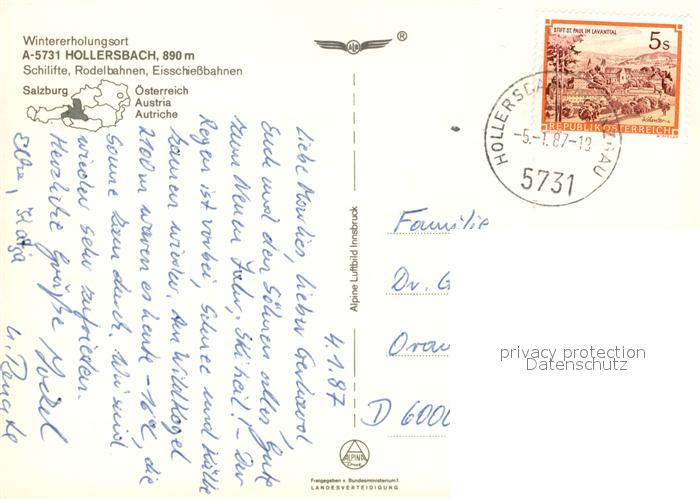 Wintererholungsort
A-5731 HOLLERSBACH, 890 m
Schilifte, Rodelbahnen, Eisschießbahnen
Salzburg
Österreich
Austria
Autriche
®
STIFT ST. PAUL IM LAVANTTAL
5s
REPUBLIK ÖSTERREICH
HOLLERSBA
ZGAU
-5.-1.87-19
5731
4.1.87
Liebe Marlies, lieber
Euch und den Söhnen alles Gute
zum Neuen Jahr, Ski heil! - Der
Regen ist vorbei, Schnee und Kälte
kamen wieder. Am Wildkogel
2100m waren es heute -16°C, die
Sonne kam durch. Wir sind
wieder sehr zufrieden.
Herzliche Grüße
Elke, Katja
u.
Familie
Dr. G
D 6000
Alpine Luftbild Innsbruck
ALPINE
Freigegeben v. Bundesministerium f.
LANDESVERTEIDIGUNG
privacy protection
Datenschutz